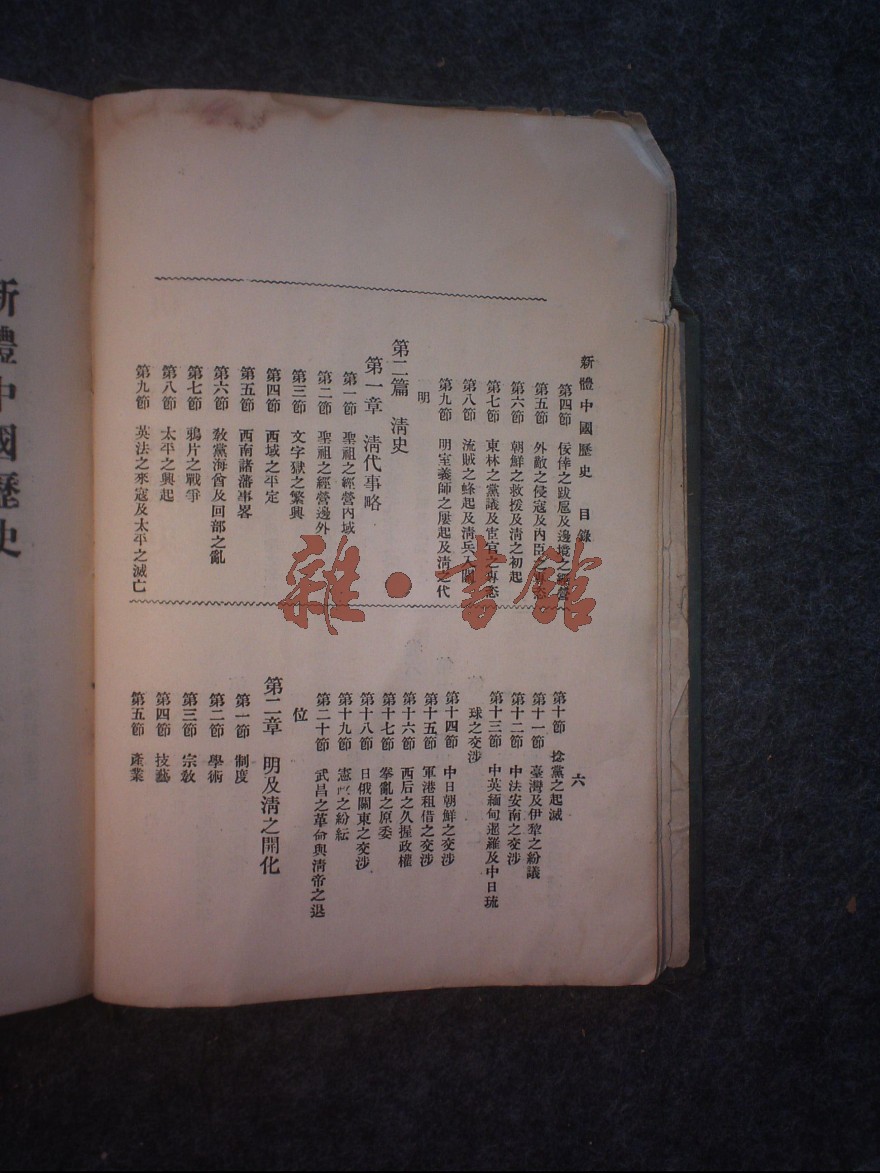 新體中國歷史 目錄
六
第四節 佞倖之跋扈及邊境之經營
第五節 外敵之侵寇及內臣之專恣
第六節 朝鮮之救援及清之初起
第七節 東林之黨議及宦官之專恣
第八節 流賊之蜂起及清兵入關
第九節 明室義師之屢起及清之代
明
第二篇 清史
第一章 清代事略
第一節 聖祖之經營內域
第二節 聖祖之經營邊外
第三節 文字獄之繁興
第四節 西域之平定
第五節 西南諸藩事畧
第六節 敎黨海酋及回部之亂
第七節 鴉片之戰爭
第八節 太平之興起
第九節 英法之來寇及太平之滅亡
第十節 捻黨之起滅
第十一節 臺灣及伊犂之紛議
第十二節 中法安南之交涉
第十三節 中英緬甸暹羅及中日琉
球之交涉
第十四節 中日朝鮮之交涉
第十五節 軍港租借之交涉
第十六節 西后之久握政權
第十七節 拳亂之原委
第十八節 日俄關東之交涉
第十九節 憲政之紛紜
第二十節 武昌之革命與清帝之退
位
第二章 明及清之開化
第一節 制度
第二節 學術
第三節 宗敎
第四節 技藝
第五節 產業
新體中國歷史
雜·書館